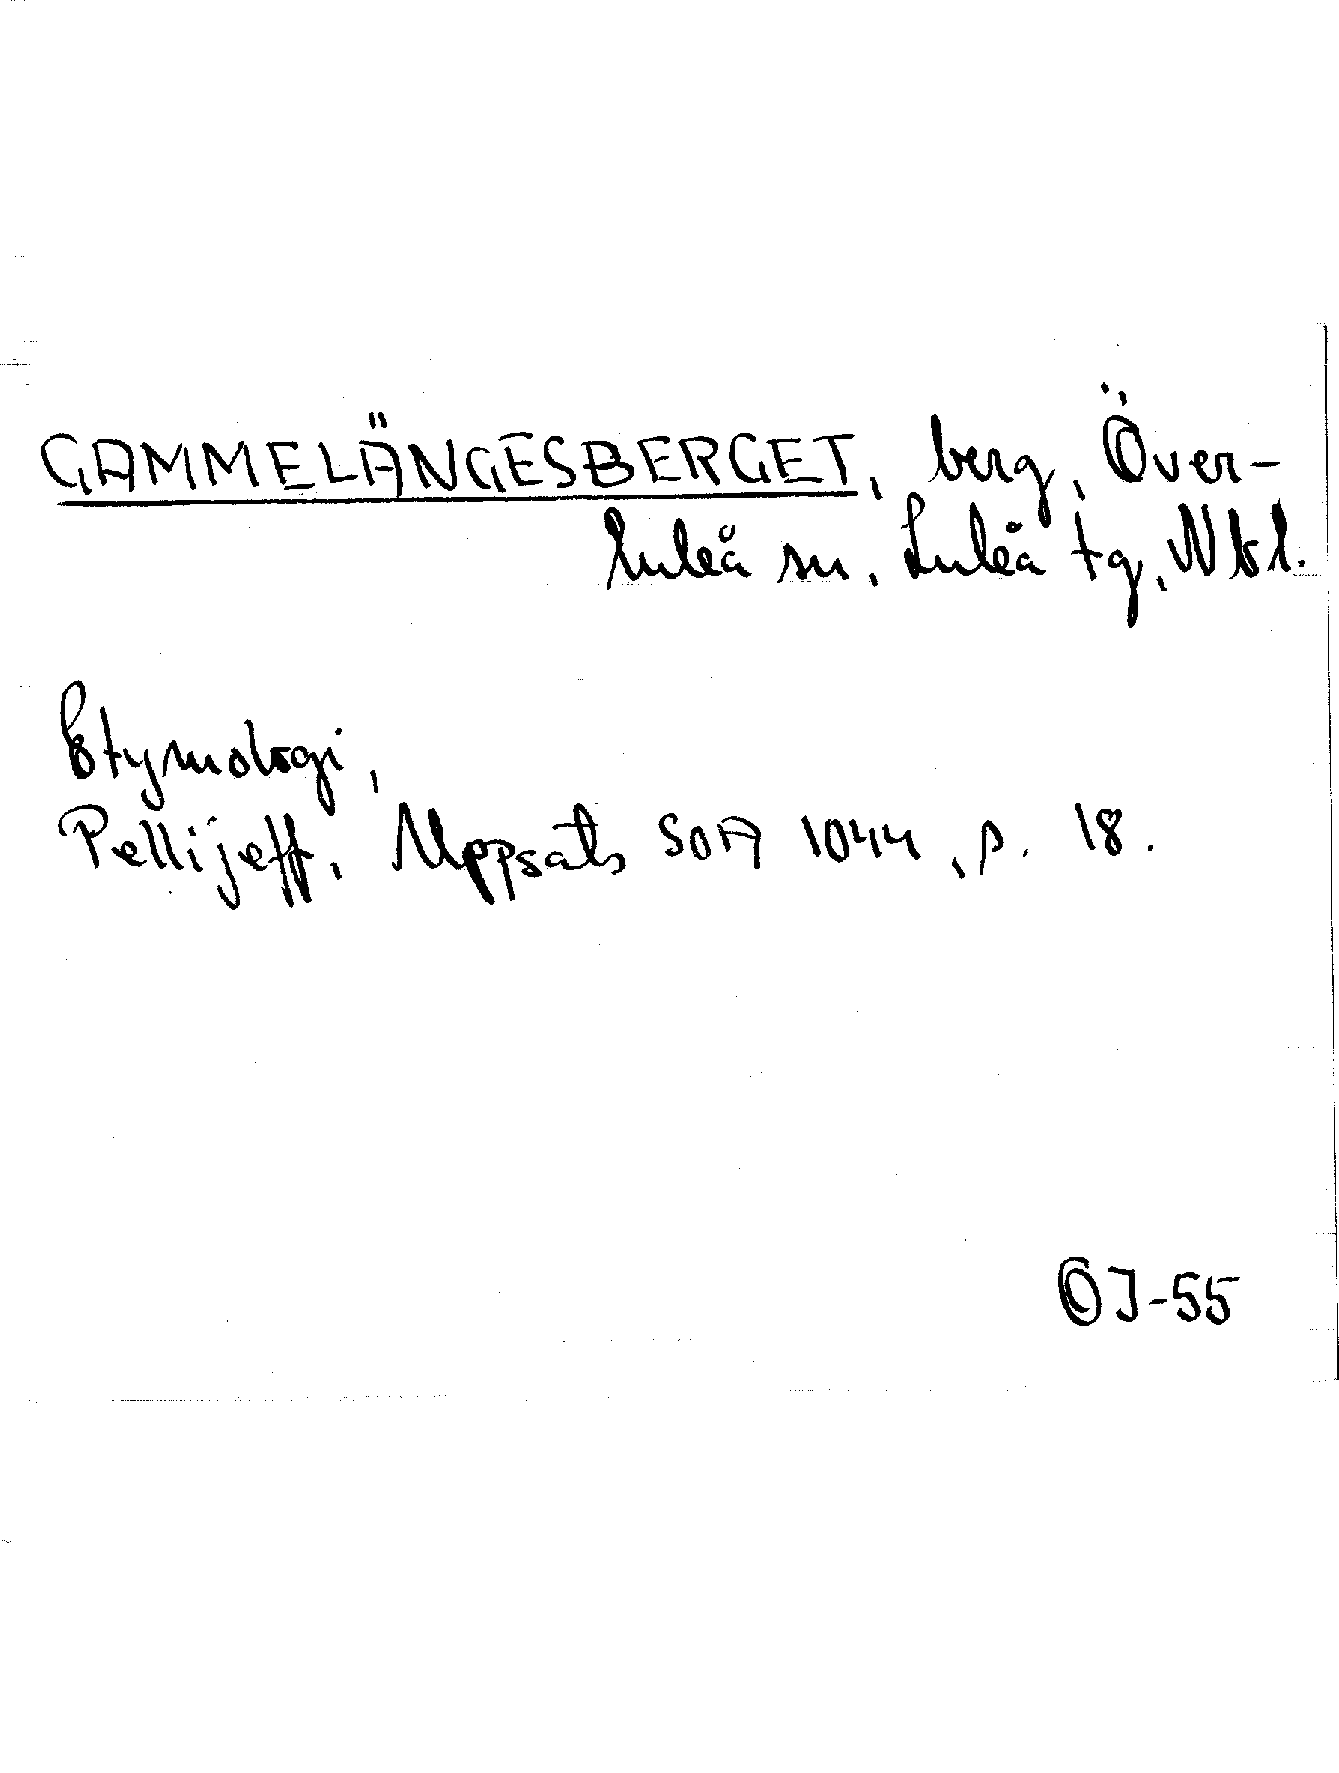 GAMMELÄNGESBERGET, berg, Över-
luleå sn, Luleå tg, Nbl.
Etymologi,
Pellijeff, Uppsats SOA 1044, s. 18.
OJ-55